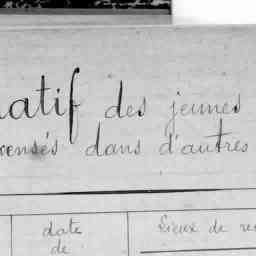 atif des jeunes
rensés dans d'autres
date Lieux de
de